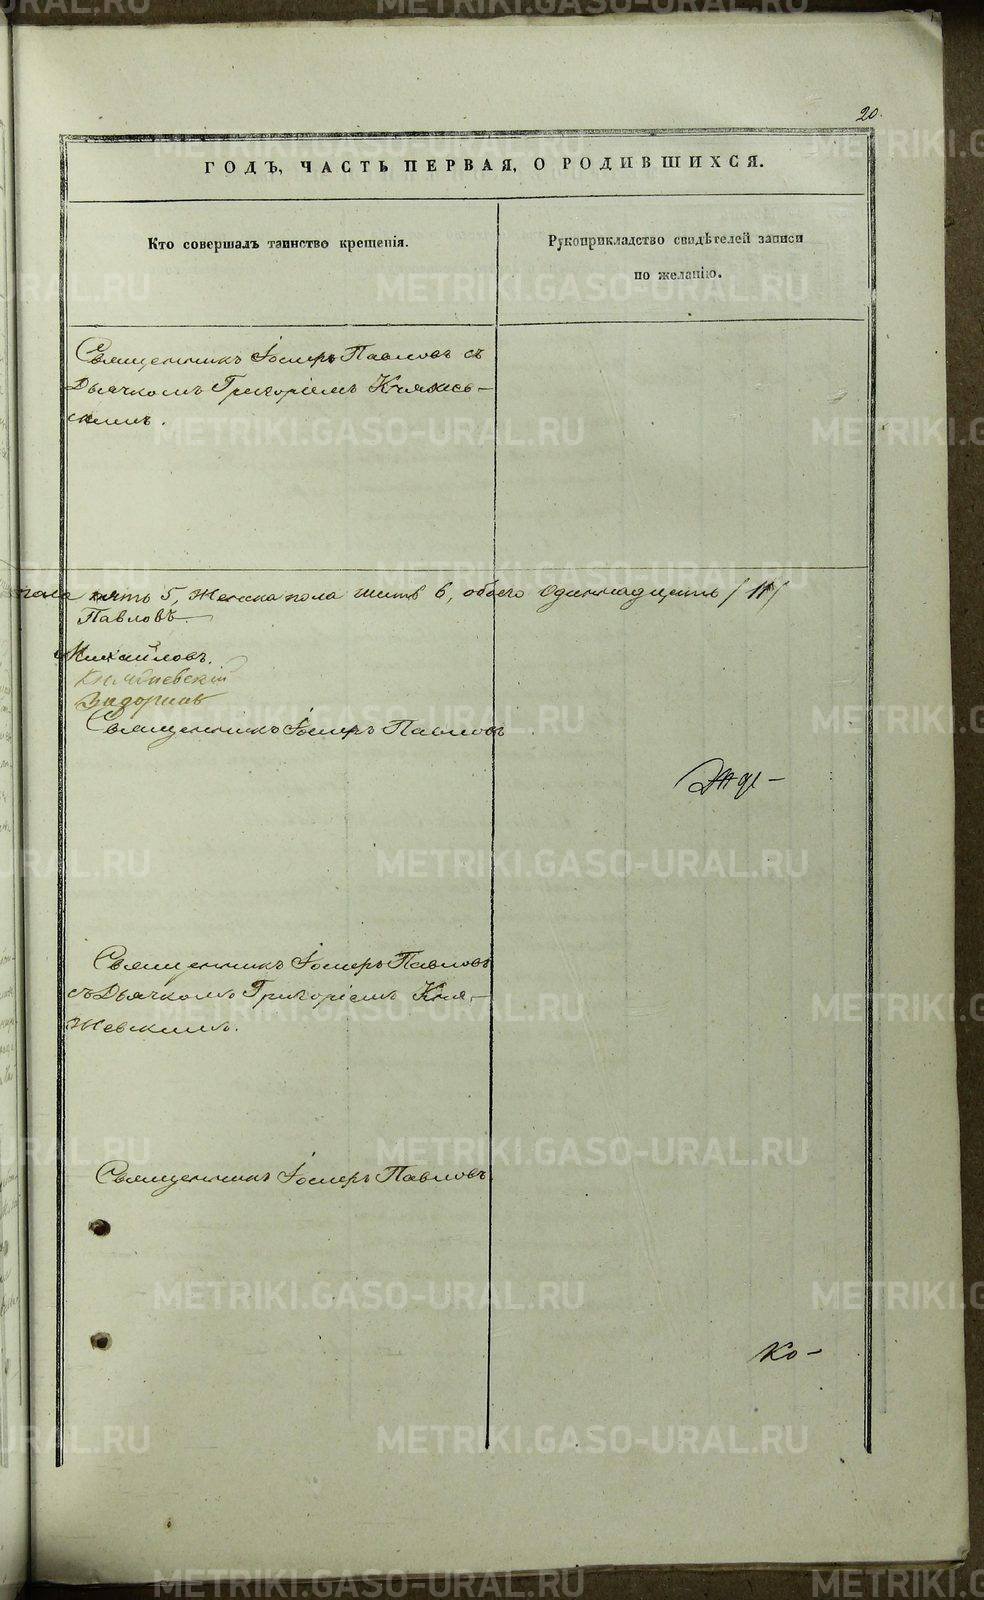 20.
ГОДЪ, ЧАСТЬ ПЕРВАЯ, О РОДИВШИХСЯ.
Кто совершалъ таинство крещенія.
Рукоприкладство свидѣтелей записи
по желанію.
Священникъ Іосифъ Павловъ съ
Дьячкомъ Григоріемъ Княжев-
скимъ.
пола пять 5, Женска пола шесть 6, обоего одиннадцать /11/
Павловъ
Михайловъ.
Княжевскій
Священникъ Іосифъ Павловъ
Священникъ Іосифъ Павловъ
съ Дьячкомъ Григоріемъ Кня-
жевскимъ.
Священникъ Іосифъ Павловъ.
Ко-
METRIKI.GASO-URAL.RU